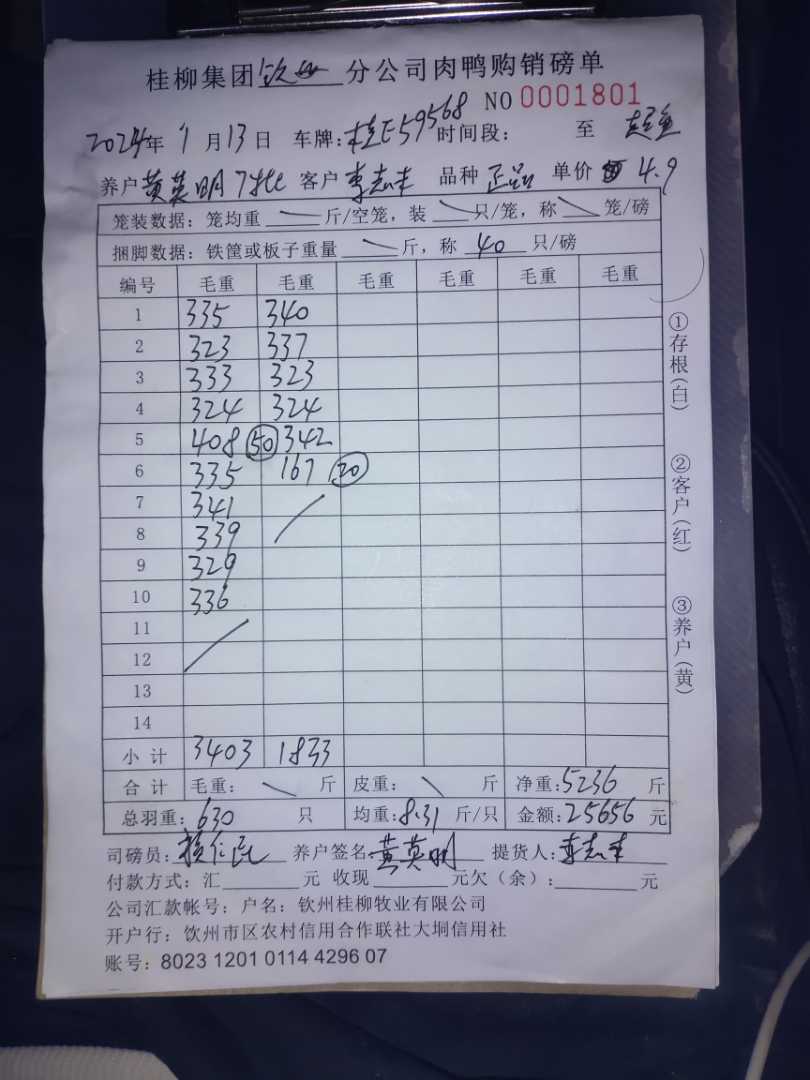 桂柳集团钦州分公司肉鸭购销磅单
NO 0001801
2024年1月13日 车牌:桂E59568 时间段: 至
养户黄英明7批 客户李志丰 品种正品 单价4.9
笼装数据:笼均重 斤/空笼,装 只/笼,称 笼/磅
捆脚数据:铁筐或板子重量 斤,称 40 只/磅
编号 毛重 毛重 毛重 毛重 毛重 毛重
1 335 340
2 323 337
3 333 323
4 324 324
5 408 50 342
6 335 167 20
7 341
8 339
9 329
10 336
11
12
13
14
小计 3403 1833
合计 毛重: 斤 皮重: 斤 净重:5236 斤
总羽重:630 只 均重:8.31 斤/只 金额:25656 元
司磅员: 养户签名:黄英明 提货人:李志丰
付款方式:汇 元 收现 元欠(余): 元
公司汇款帐号:户名:钦州桂柳牧业有限公司
开户行:饮州市区农村信用合作联社大垌信用社
账号:8023 1201 0114 4296 07
①存根(白)
②客户(红)
③养户(黄)